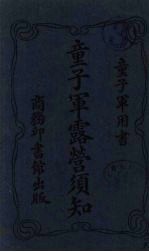 童子軍用書
童子軍露營須知
商務印書館出版